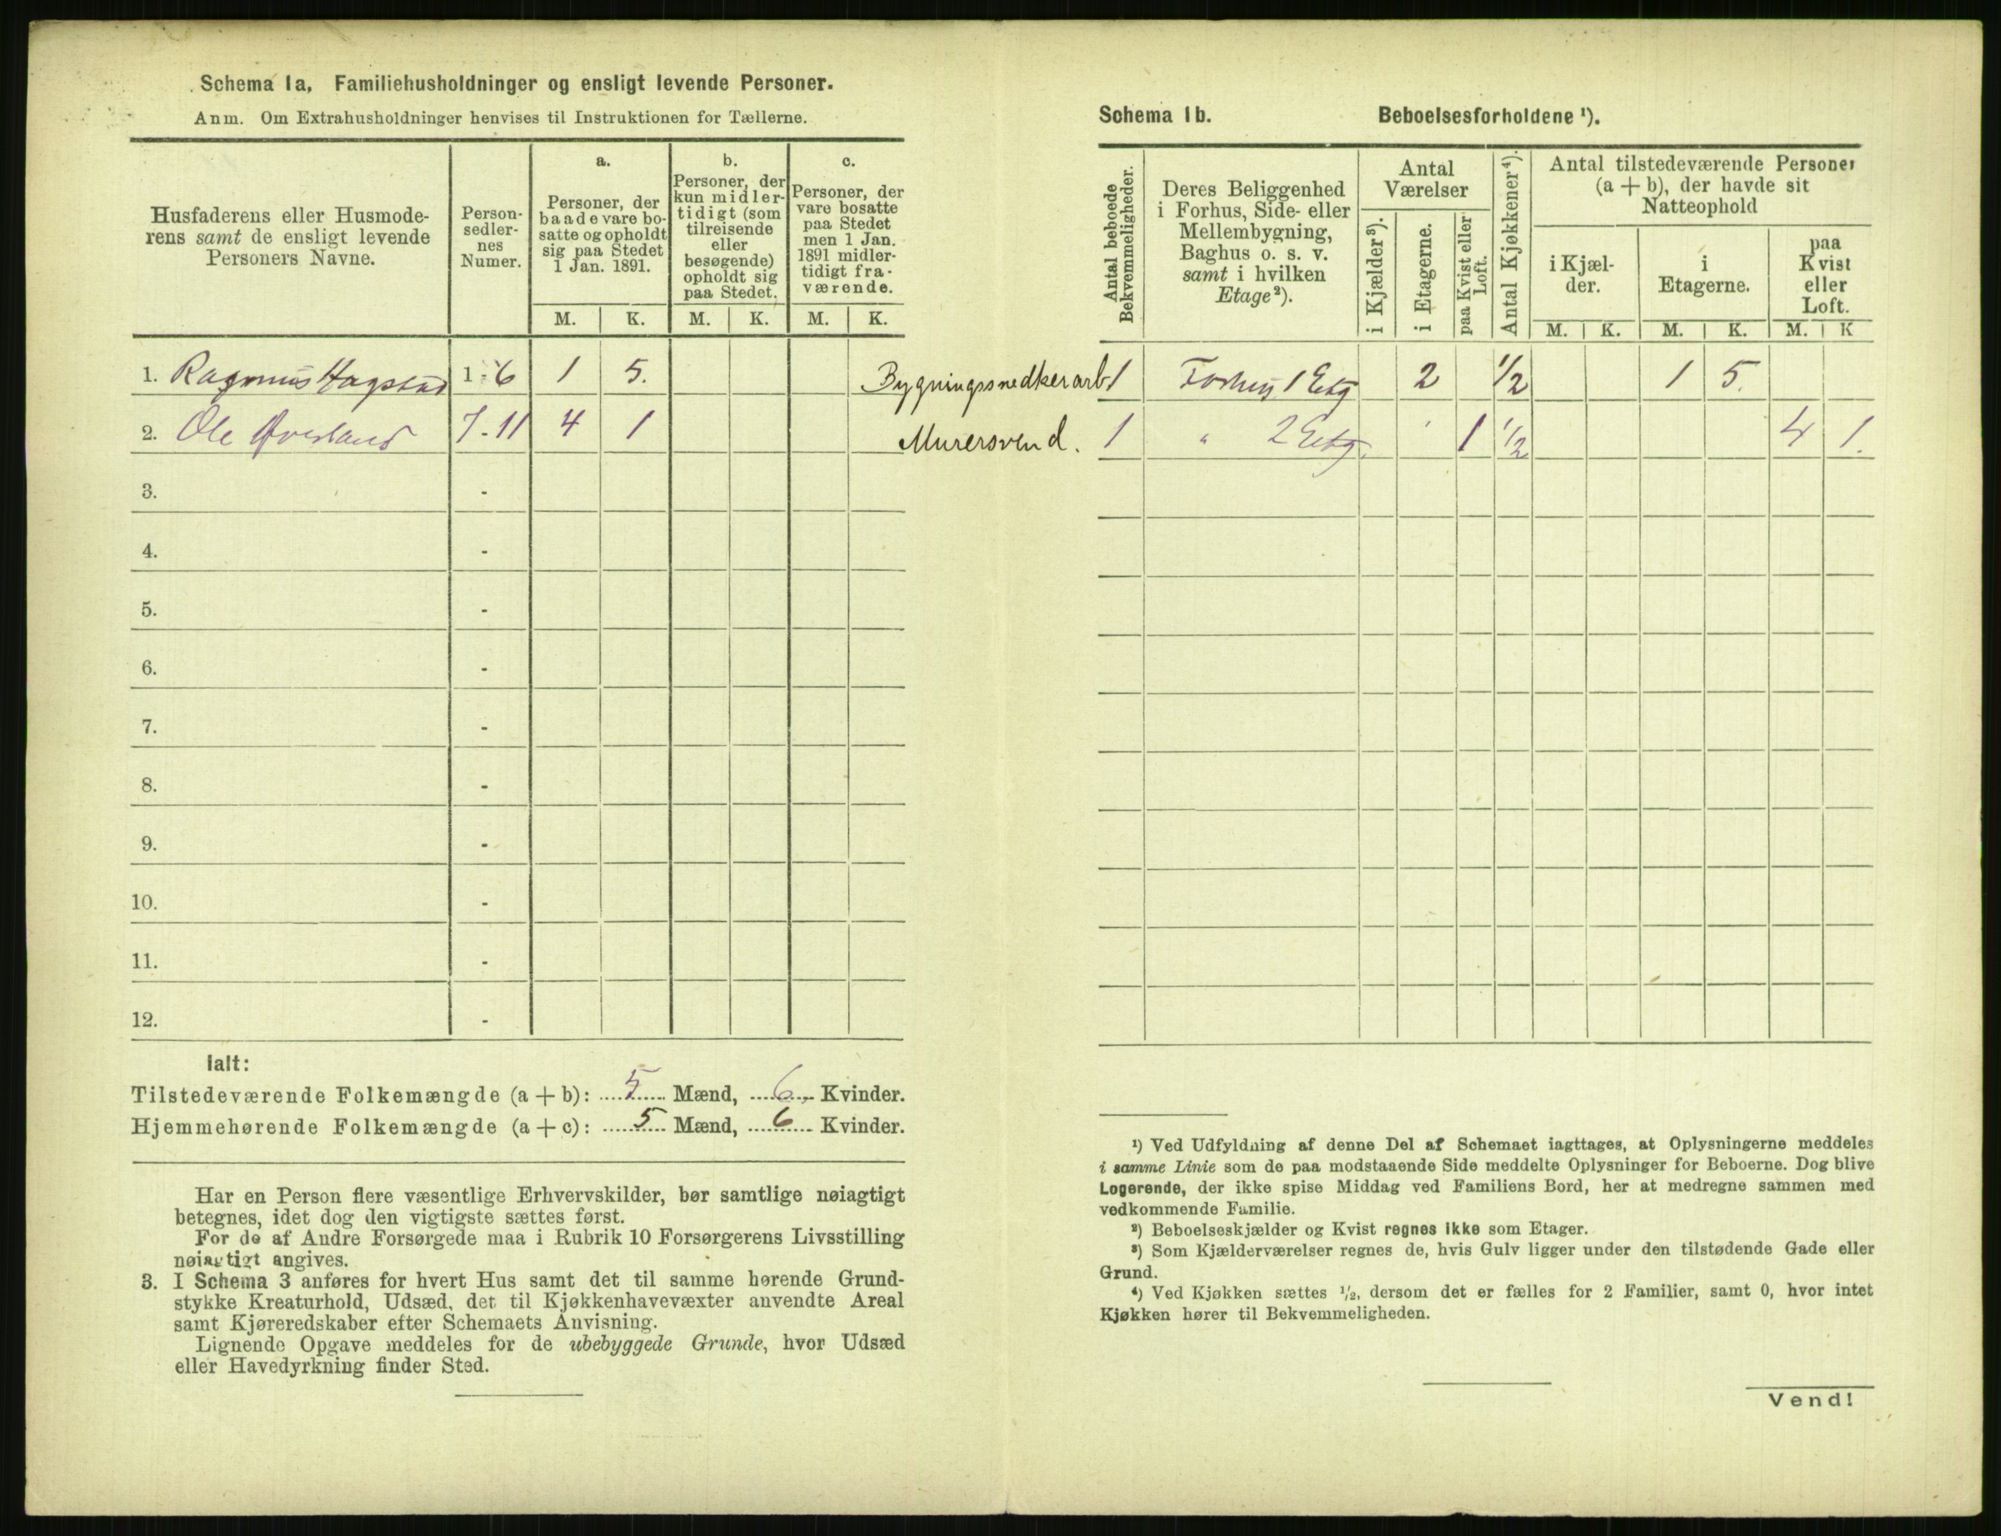 Schema 1a, Familiehusholdninger og ensligt levende Personer.
Anm. Om Extrahusholdninger henvises til Instruktionen for Tællerne.
Husfaderens eller Husmoderens samt de ensligt levende Personers Navne.
Personsedlernes Numer.
a. Personer, der baade vare bosatte og opholdt sig paa Stedet 1 Jan. 1891.
b. Personer, der kun midlertidigt (som tilreisende eller besøgende) opholdt sig paa Stedet.
c. Personer, der vare bosatte paa Stedet men 1 Jan. 1891 midlertidigt fraværende.
M. K. M. K. M. K.
1. Rasmus Hagstad 1-6 1 5. Bygningssnedkerarb
2. Ole Øverland 7-11 4 1 Murersvend.
3. -
4. -
5. -
6. -
7. -
8. -
9. -
10. -
11. -
12. -
Ialt:
Tilstedeværende Folkemængde (a + b): 5 Mænd, 6 Kvinder.
Hjemmehørende Folkemængde (a + c): 5 Mænd, 6 Kvinder.
Har en Person flere væsentlige Erhvervskilder, bør samtlige nøiagtigt
betegnes, idet dog den vigtigste sættes først.
For de af Andre Forsørgede maa i Rubrik 10 Forsørgerens Livsstilling
nøiagtigt angives.
3. I Schema 3 anføres for hvert Hus samt det til samme hørende Grund-
stykke Kreaturhold, Udsæd, det til Kjøkkenhavevæxter anvendte Areal
samt Kjøreredskaber efter Schemaets Anvisning.
Lignende Opgave meddeles for de ubebyggede Grunde, hvor Udsæd
eller Havedyrkning finder Sted.
Schema 1b. Beboelsesforholdene ¹).
Antal beboede Bekvemmeligheder.
Deres Beliggenhed i Forhus, Side- eller Mellembygning, Baghus o. s. v. samt i hvilken Etage²).
Antal Værelser
i Kjælder³).
i Etagerne.
paa Kvist eller Loft.
Antal Kjøkkener⁴).
Antal tilstedeværende Personer (a + b), der havde sit Natteophold
i Kjælder.
i Etagerne.
paa Kvist eller Loft.
M. K. M. K. M. K
1 Forhus 1 Etg 2 1/2 1 5.
1 " 2 Etg. ' 1 1/2 4 1.
¹) Ved Udfyldning af denne Del af Schemaet iagttages, at Oplysningerne meddeles
i samme Linie som de paa modstaaende Side meddelte Oplysninger for Beboerne. Dog blive
Logerende, der ikke spise Middag ved Familiens Bord, her at medregne sammen med
vedkommende Familie.
²) Beboelseskjælder og Kvist regnes ikke som Etager.
³) Som Kjælderværelser regnes de, hvis Gulv ligger under den tilstødende Gade eller
Grund.
⁴) Ved Kjøkken sættes ½, dersom det er fælles for 2 Familier, samt 0, hvor intet
Kjøkken hører til Bekvemmeligheden.
Vend!